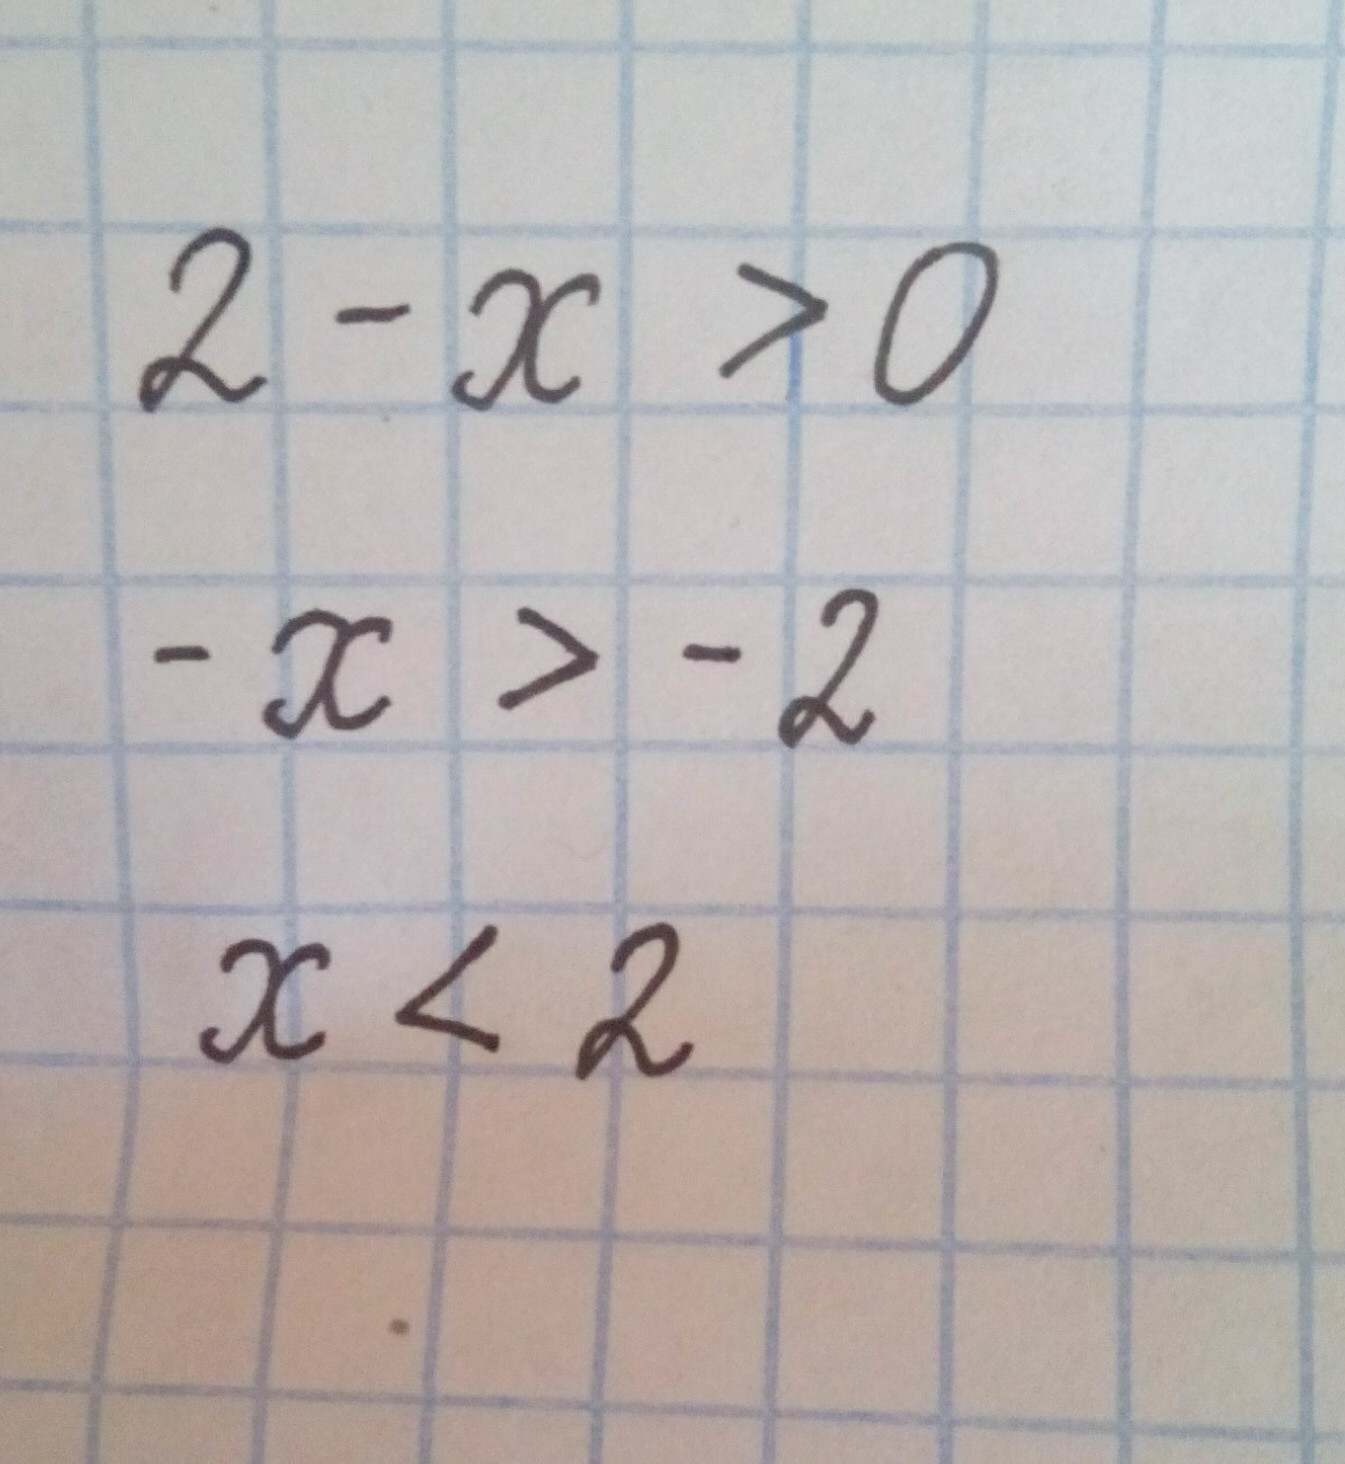 2 - x > 0
- x > - 2
x < 2